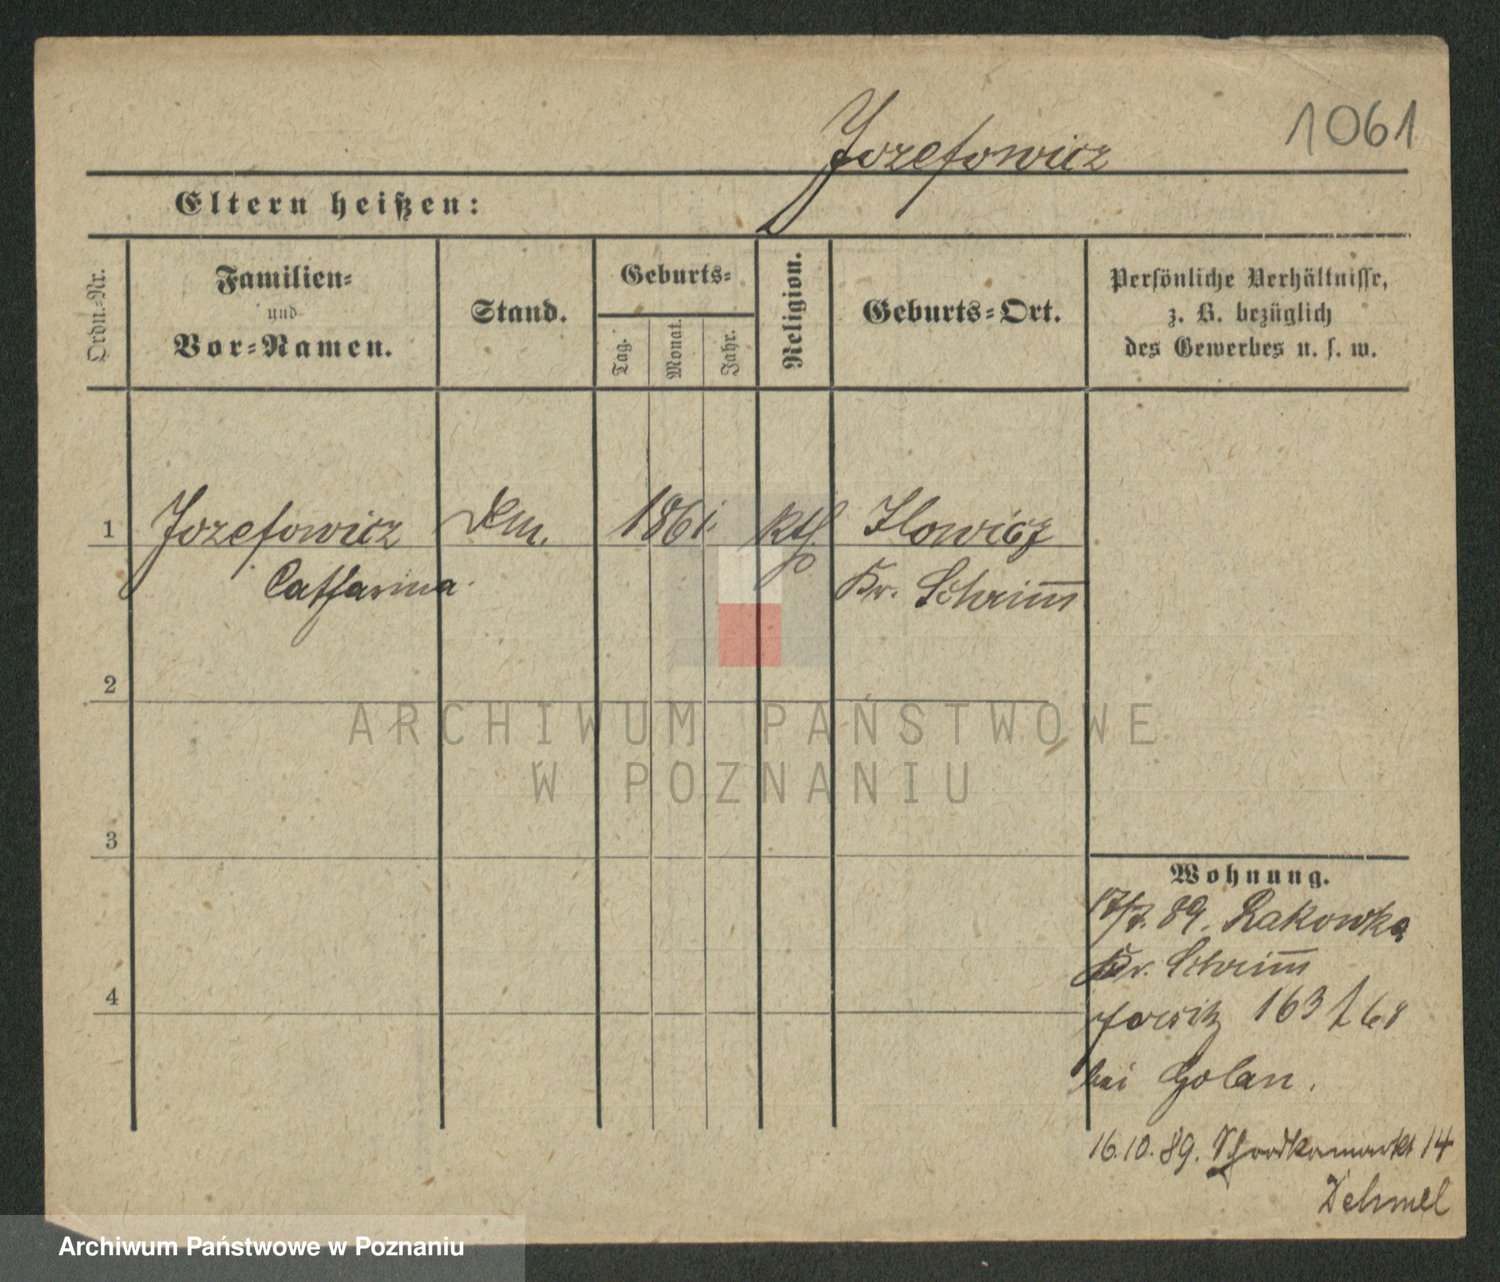 1061
Jozefowicz
Eltern heißen:
Ordn.-Nr.
Familien-
und
Vor-Namen.
Stand.
Geburts-
Tag.
Monat.
Jahr.
Religion.
Geburts-Ort.
Persönliche Verhältnisse,
z. B. bezüglich
des Gewerbes u. s. w.
1 Jozefowicz 1861. kth Ilowicz
Catharina Kr. Schrim̅
2
3
4
Wohnung.
17/7. 89. Rakowka
Kr. Schrim̅
163
bei Golan.
16.10.89. 14
Dehmel
ARCHIWUM PAŃSTWOWE
W POZNANIU
Archiwum Państwowe w Poznaniu